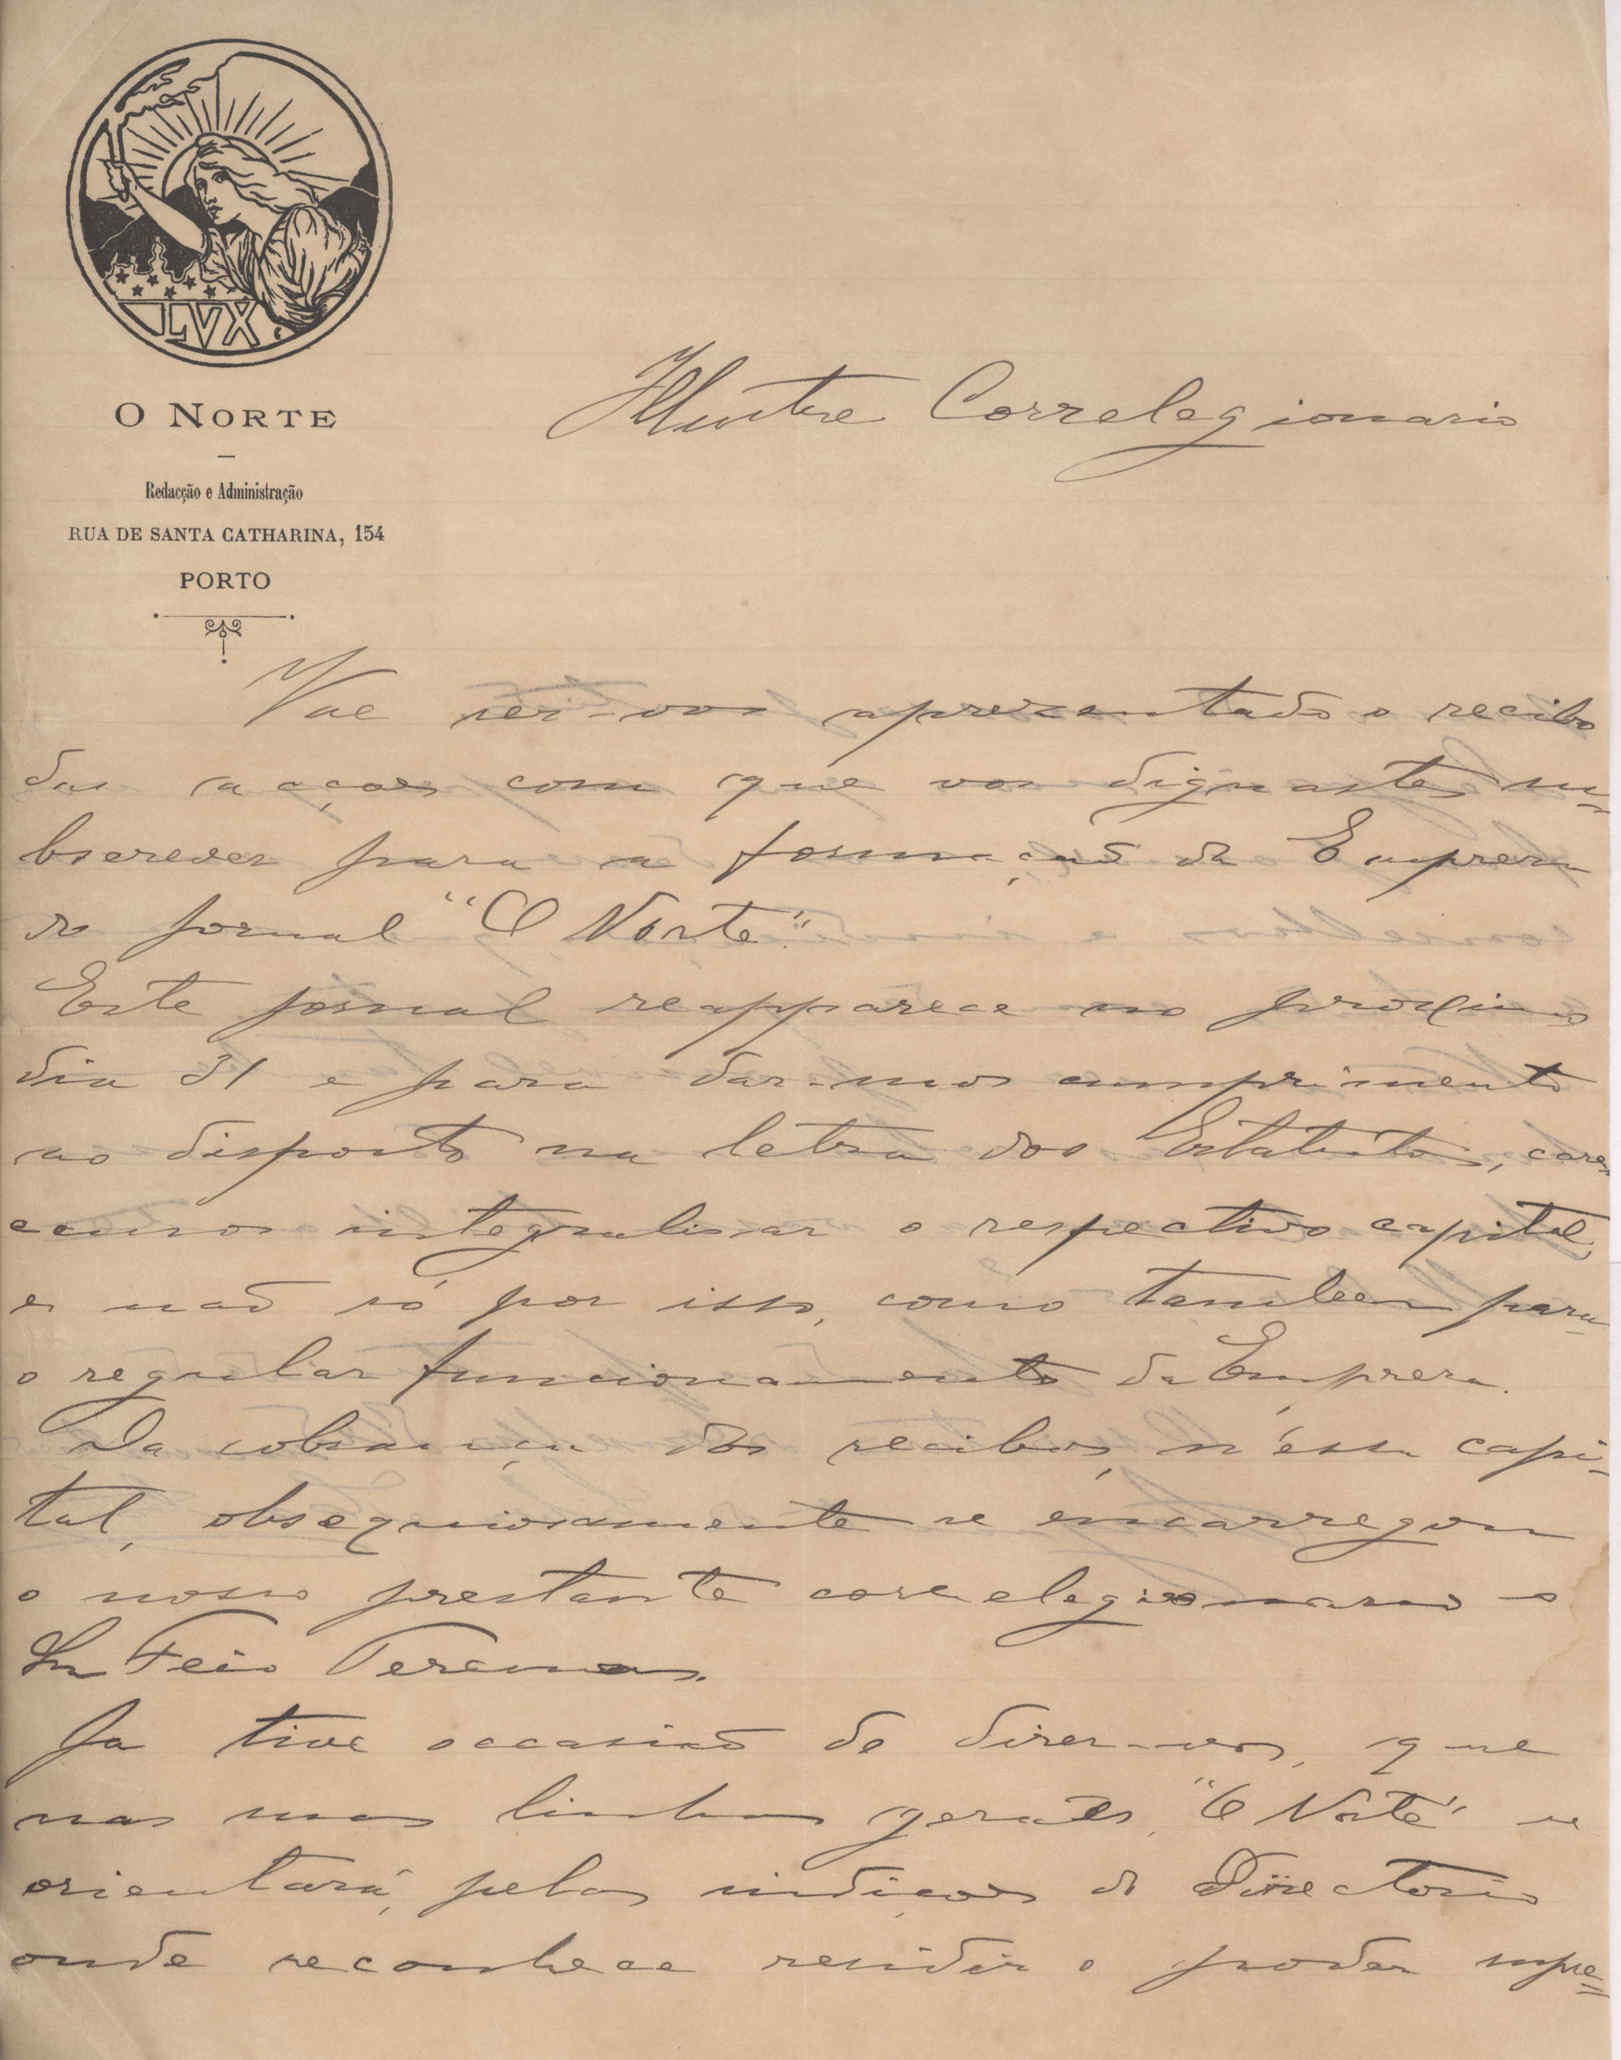 LVX
O NORTE
Redacção e Administração
RUA DE SANTA CATHARINA, 154
PORTO
Illustre Correlegionario
Vae ser-vos aprezentado o recibo
das acções com que vos dignastes su=
bscrever para a formação da Empreza
do jornal "O Norte".
Este jornal reapparece no proximo
dia 31 e para dar-mos cumprimento
ao disposto na letra dos Estatutos, care-
cemos integralisar o respectivo capital,
e não só por isso, como tambem para
o regular funcionamento da Empreza.
Da cobrança dos recibos, n'essa capi-
tal, obsequiosamente se encarregou
o nosso prestante correlegionario o
Snr Feio Terenas.
Ja tive occasião de dizer-vos, que
nas suas linhas geraes, "O Norte" se
orientará, pelas indicações do Directorio
onde reconhece residir o poder supre=